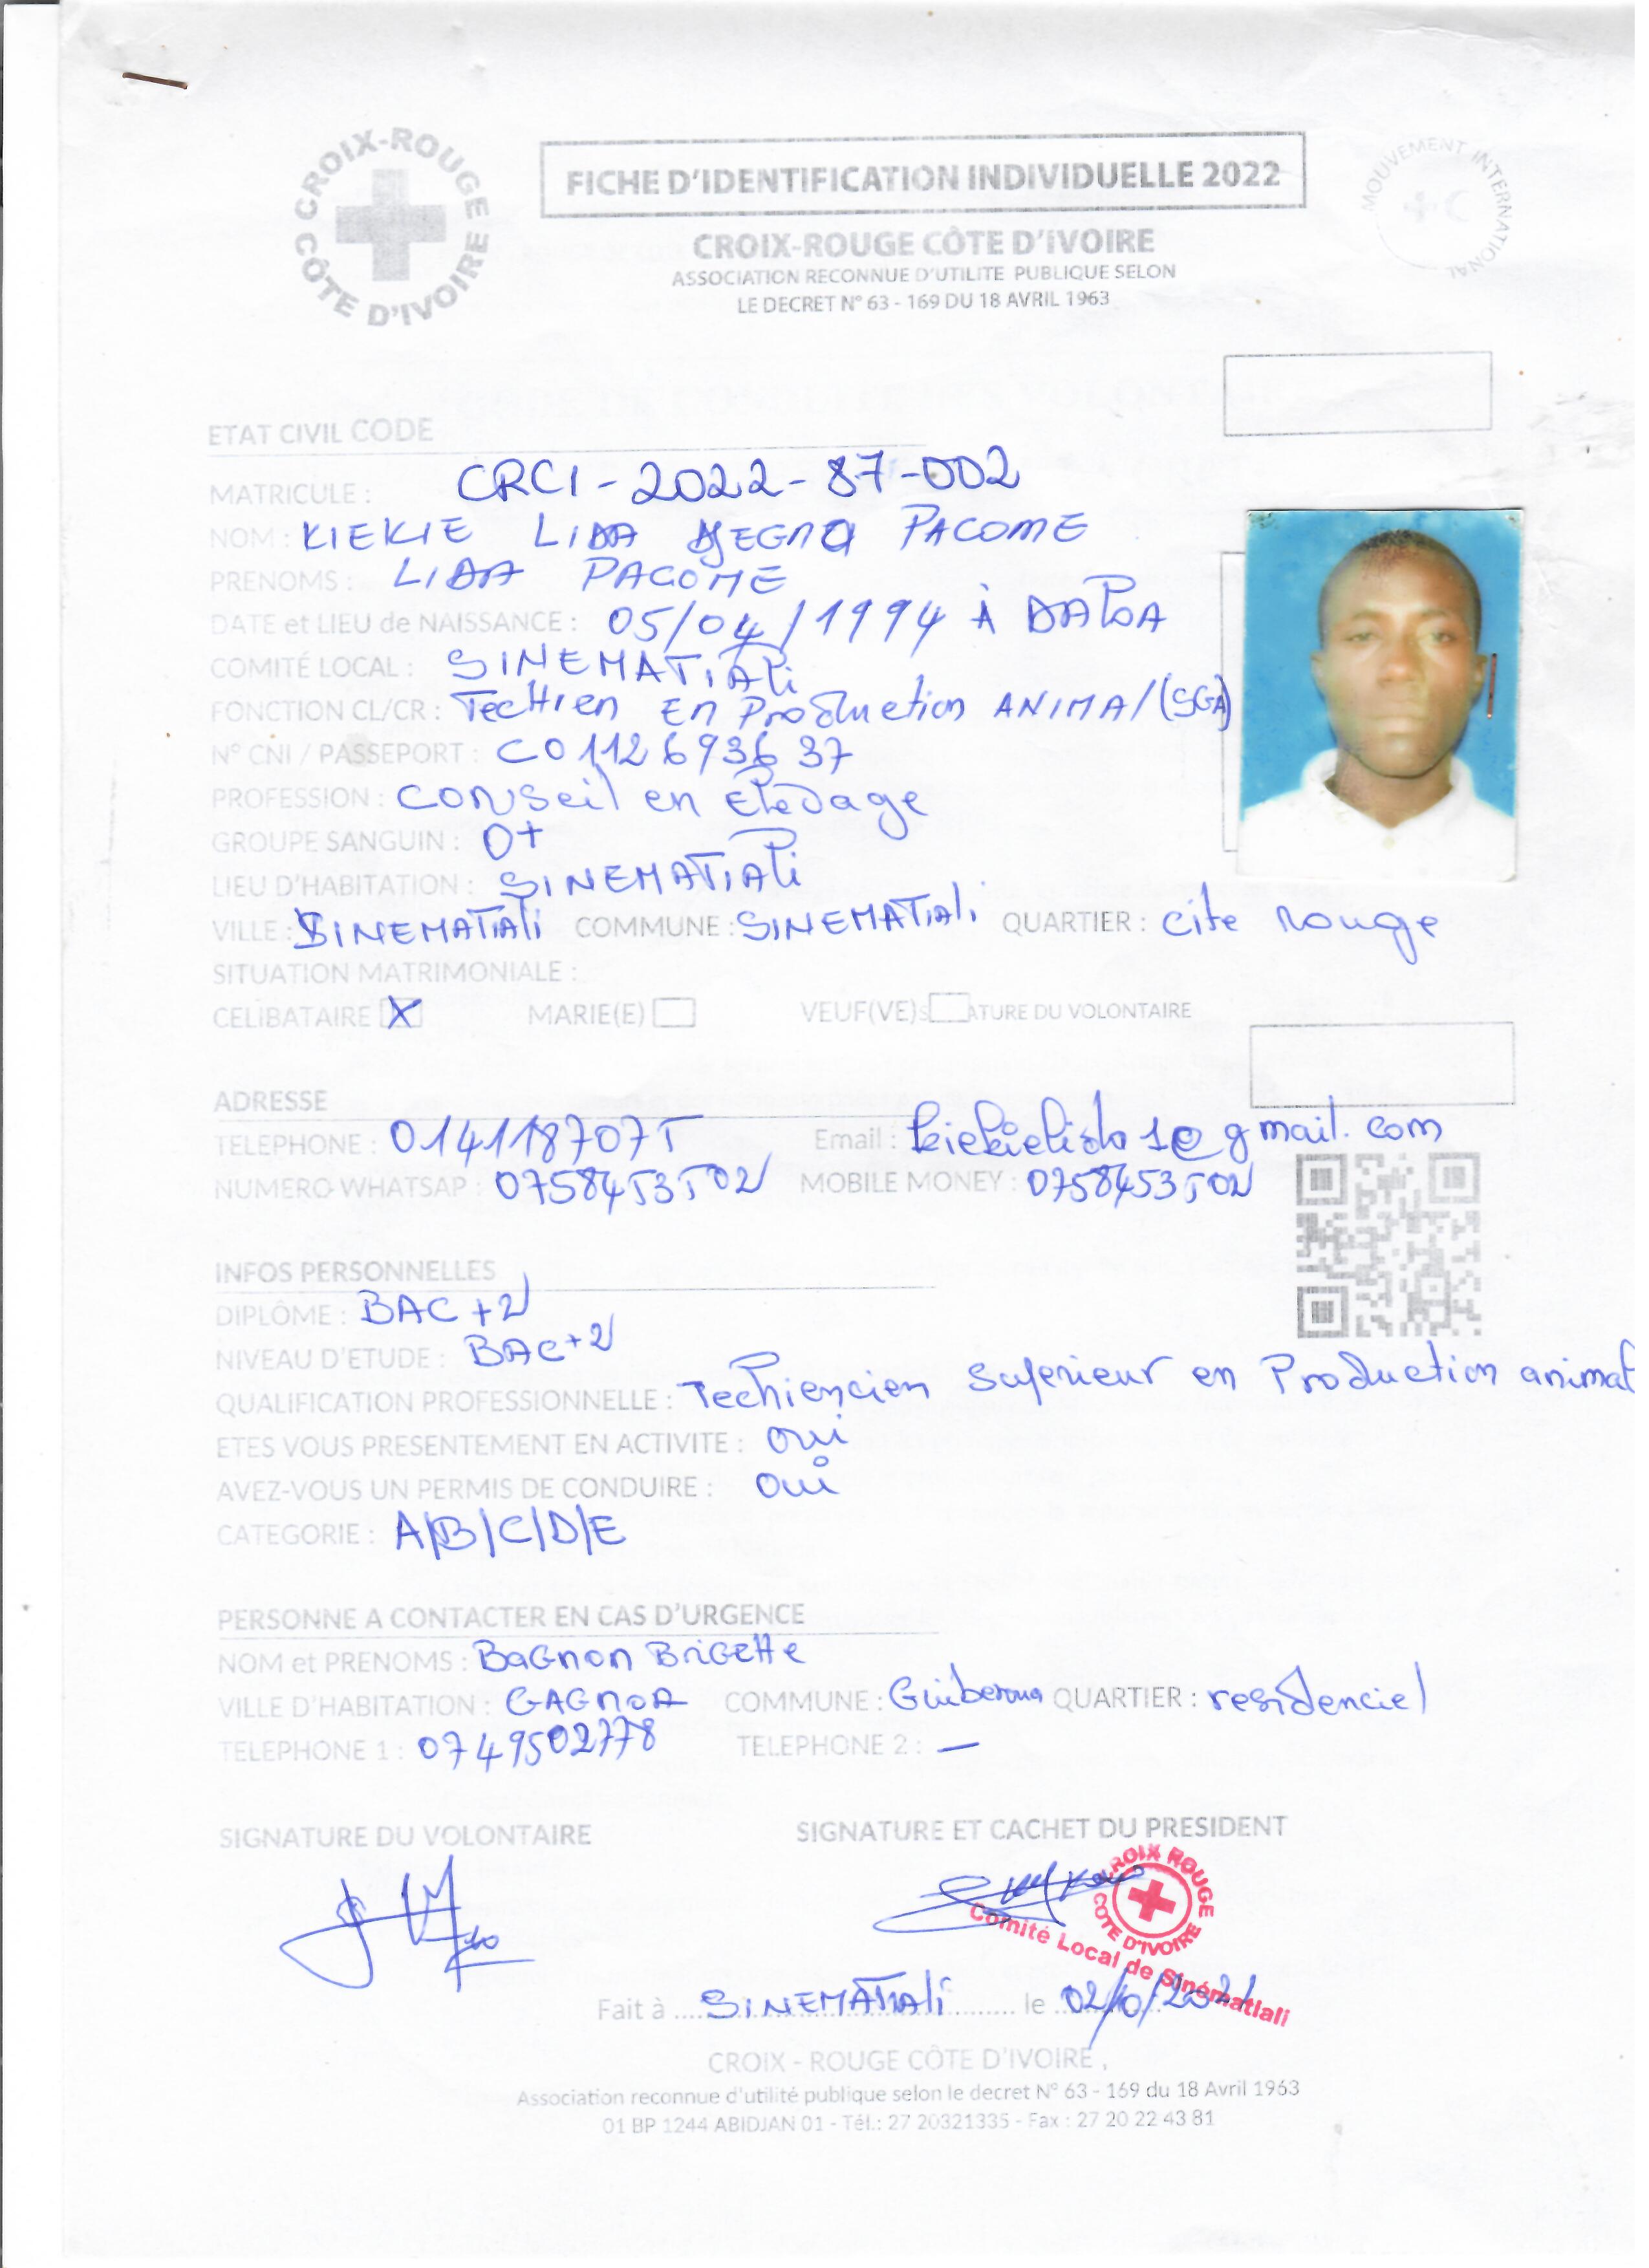 CROIX-ROUGE CÔTE D'IVOIRE
FICHE D'IDENTIFICATION INDIVIDUELLE 2022
MOUVEMENT INTERNATIONAL
CROIX-ROUGE CÔTE D'IVOIRE
ASSOCIATION RECONNUE D'UTILITE PUBLIQUE SELON
LE DECRET N° 63 - 169 DU 18 AVRIL 1963
ETAT CIVIL CODE
MATRICULE : CRCI-2022-87-002
NOM : KIEKIE LIDA PACOME
PRENOMS : LIDA PACOME
DATE et LIEU de NAISSANCE : 05/04/1994 À DALOA
COMITÉ LOCAL : SINEMATIALi
FONCTION CL/CR : TecHien En Production ANIMAl (SGA)
N° CNI / PASSEPORT : C0112693637
PROFESSION : Conseil en Elevage
GROUPE SANGUIN : O+
LIEU D'HABITATION : SINEMATIALi
VILLE : SINEMATIALi COMMUNE : SINEMATIALi QUARTIER : cite rouge
SITUATION MATRIMONIALE :
CELIBATAIRE X MARIE(E) VEUF(VE) ATURE DU VOLONTAIRE
ADRESSE
TELEPHONE : 0141187075 Email : kiekielida1@gmail.com
NUMERO WHATSAP : 0758453502 MOBILE MONEY : 0758453502
INFOS PERSONNELLES
DIPLÔME : BAC+2
NIVEAU D'ETUDE : BAC+2
QUALIFICATION PROFESSIONNELLE : Techiencien Superieur en Production animal
ETES VOUS PRESENTEMENT EN ACTIVITE : oui
AVEZ-VOUS UN PERMIS DE CONDUIRE : oui
CATEGORIE : A/B/C/D/E
PERSONNE A CONTACTER EN CAS D'URGENCE
NOM et PRENOMS : BaGnon BriGette
VILLE D'HABITATION : GAGnoA COMMUNE : Guiberoua QUARTIER : residenciel
TELEPHONE 1 : 0749502778 TELEPHONE 2 : —
SIGNATURE DU VOLONTAIRE SIGNATURE ET CACHET DU PRESIDENT
CROIX ROUGE CÔTE D'IVOIRE
Comité Local de Sinématiali
Fait à SINEMATIALi le 02/10/2021
CROIX - ROUGE CÔTE D'IVOIRE ,
Association reconnue d'utilité publique selon le decret N° 63 - 169 du 18 Avril 1963
01 BP 1244 ABIDJAN 01 - Tél.: 27 20321335 - Fax : 27 20 22 43 81